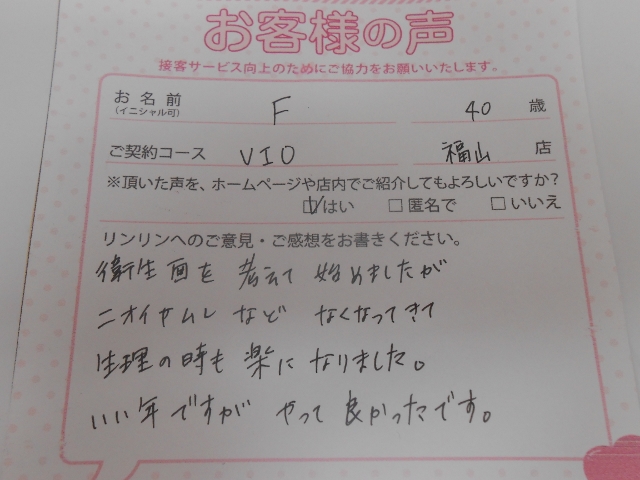 お客様の声
接客サービス向上のためにご協力をお願いいたします。
お名前 F 40 歳
(イニシャル可)
ご契約コース VIO 福山 店
※頂いた声を、ホームページや店内でご紹介してもよろしいですか?
☑はい □匿名で □いいえ
リンリンへのご意見・ご感想をお書きください。
衛生面を 考えて 始めましたが
ニオイやムレ など なくなってきて
生理の時も 楽に なりました。
いい年ですが やって 良かったです。